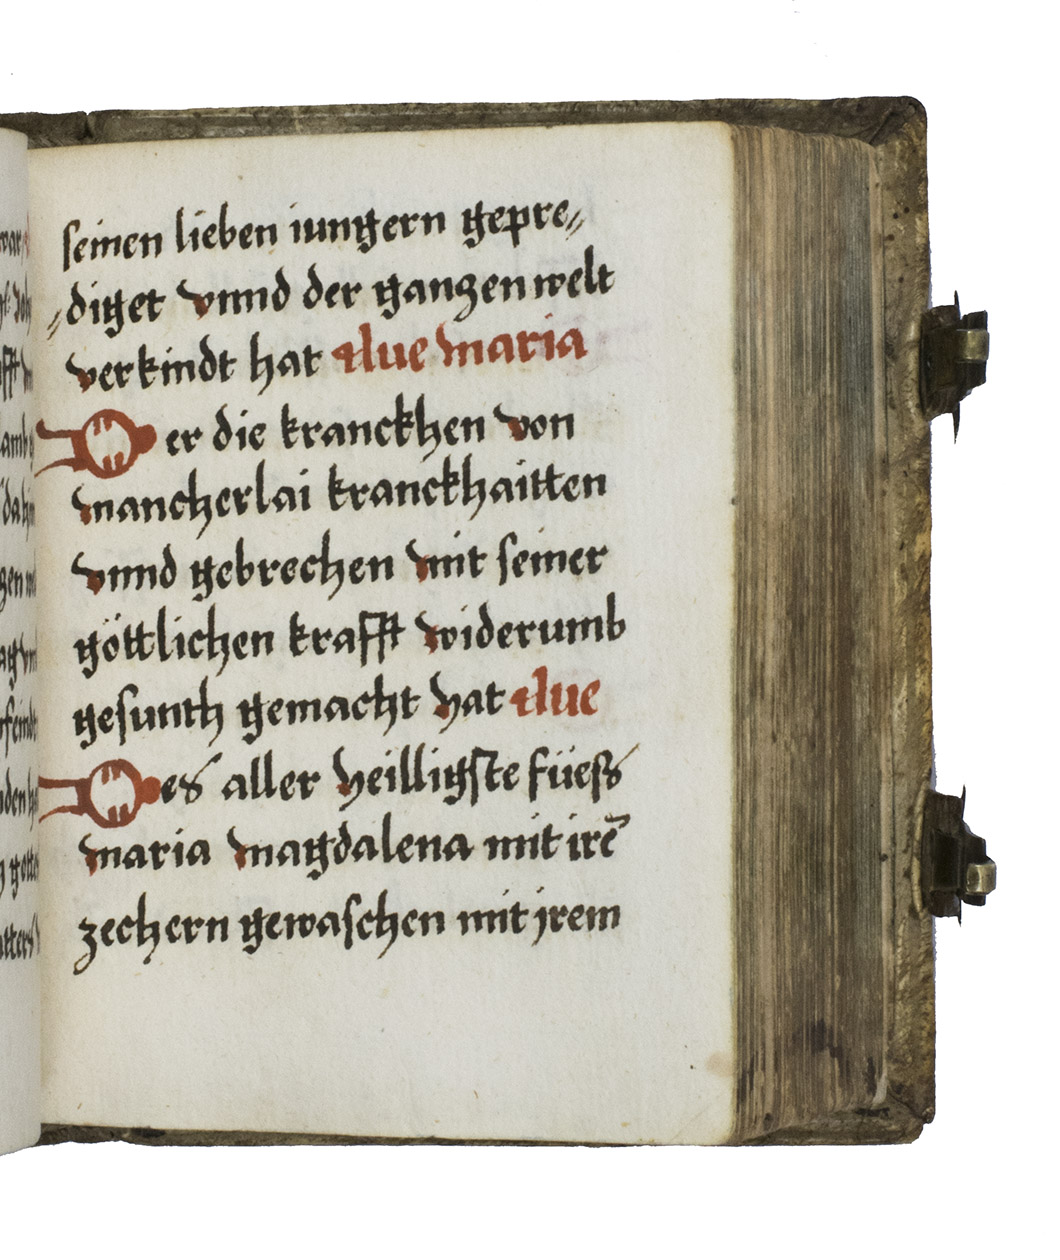 seinen lieben iungern gepre⸗
⸗diget vnnd der ganzen welt
verkindt hat Aue maria
Der die kranckhen von
mancherlai kranckhaitten
vnnd gebrechen mit seiner
göttlichen krafft widerumb
gesunth gemacht hat Aue
Des aller heilligste füess
maria magdalena mit irē
zechern gewaschen mit jrem